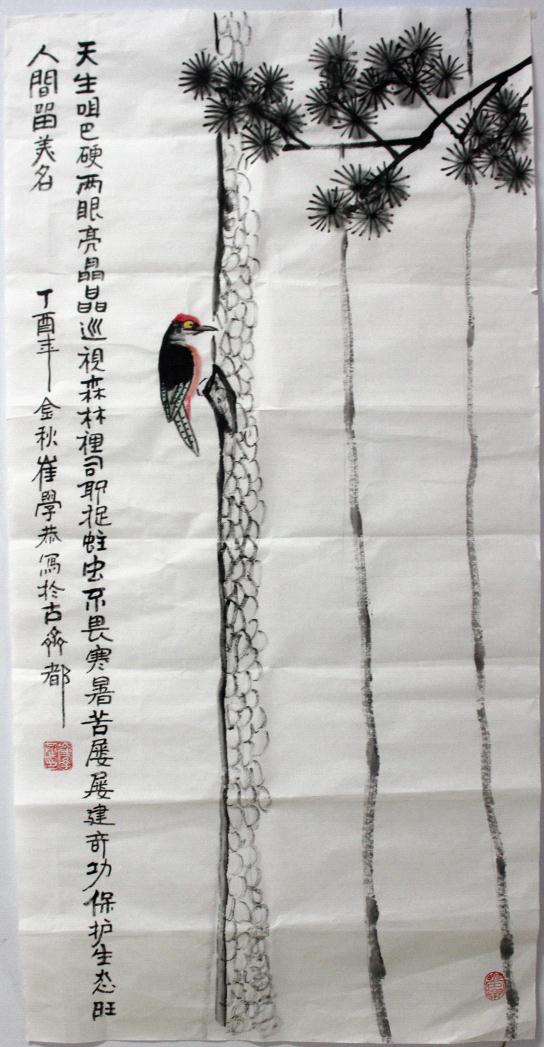 天生咀巴硬两眼亮晶晶巡視森林裡司职捉蛀虫不畏寒暑苦屡屡建奇功保护生态旺
人間留美名
丁酉年金秋崔學恭寫於古齊都